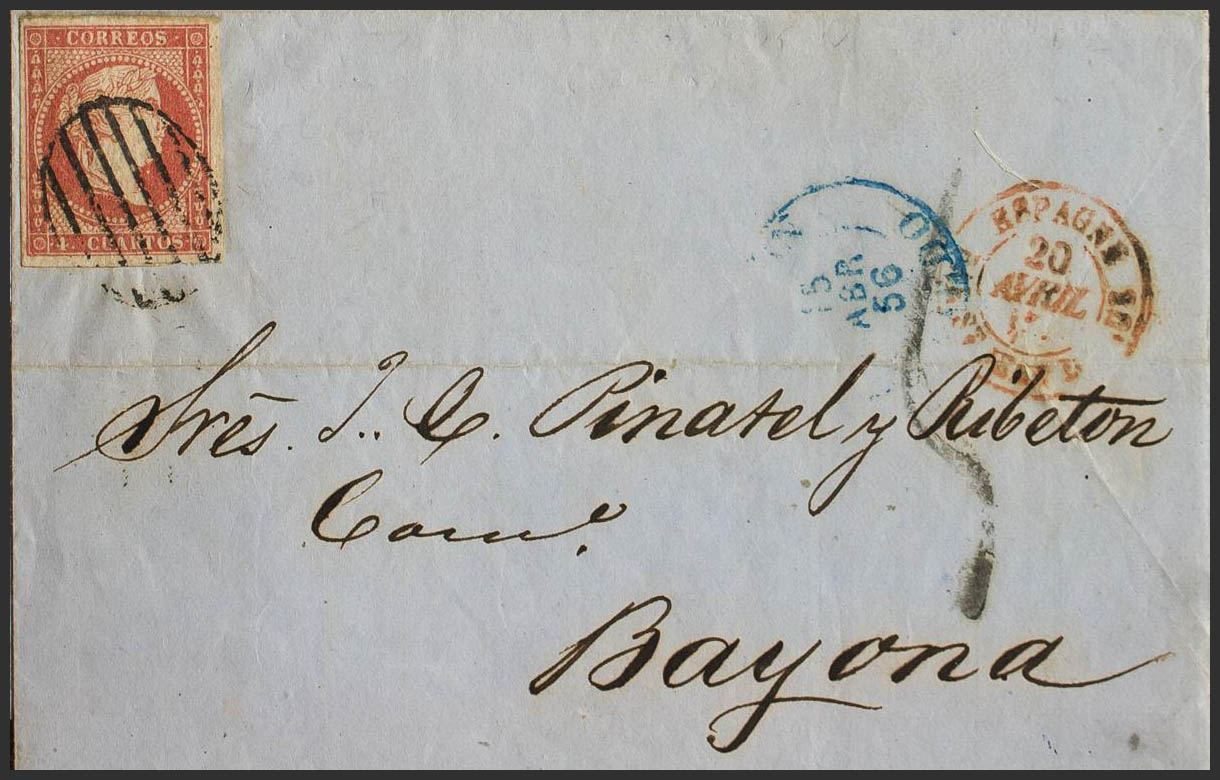 CORREOS
4. CUARTOS
15
ABR
56
ESPAGNE
20
AVRIL
Sres. J. C. Pinatel y Ribeton
Bayona